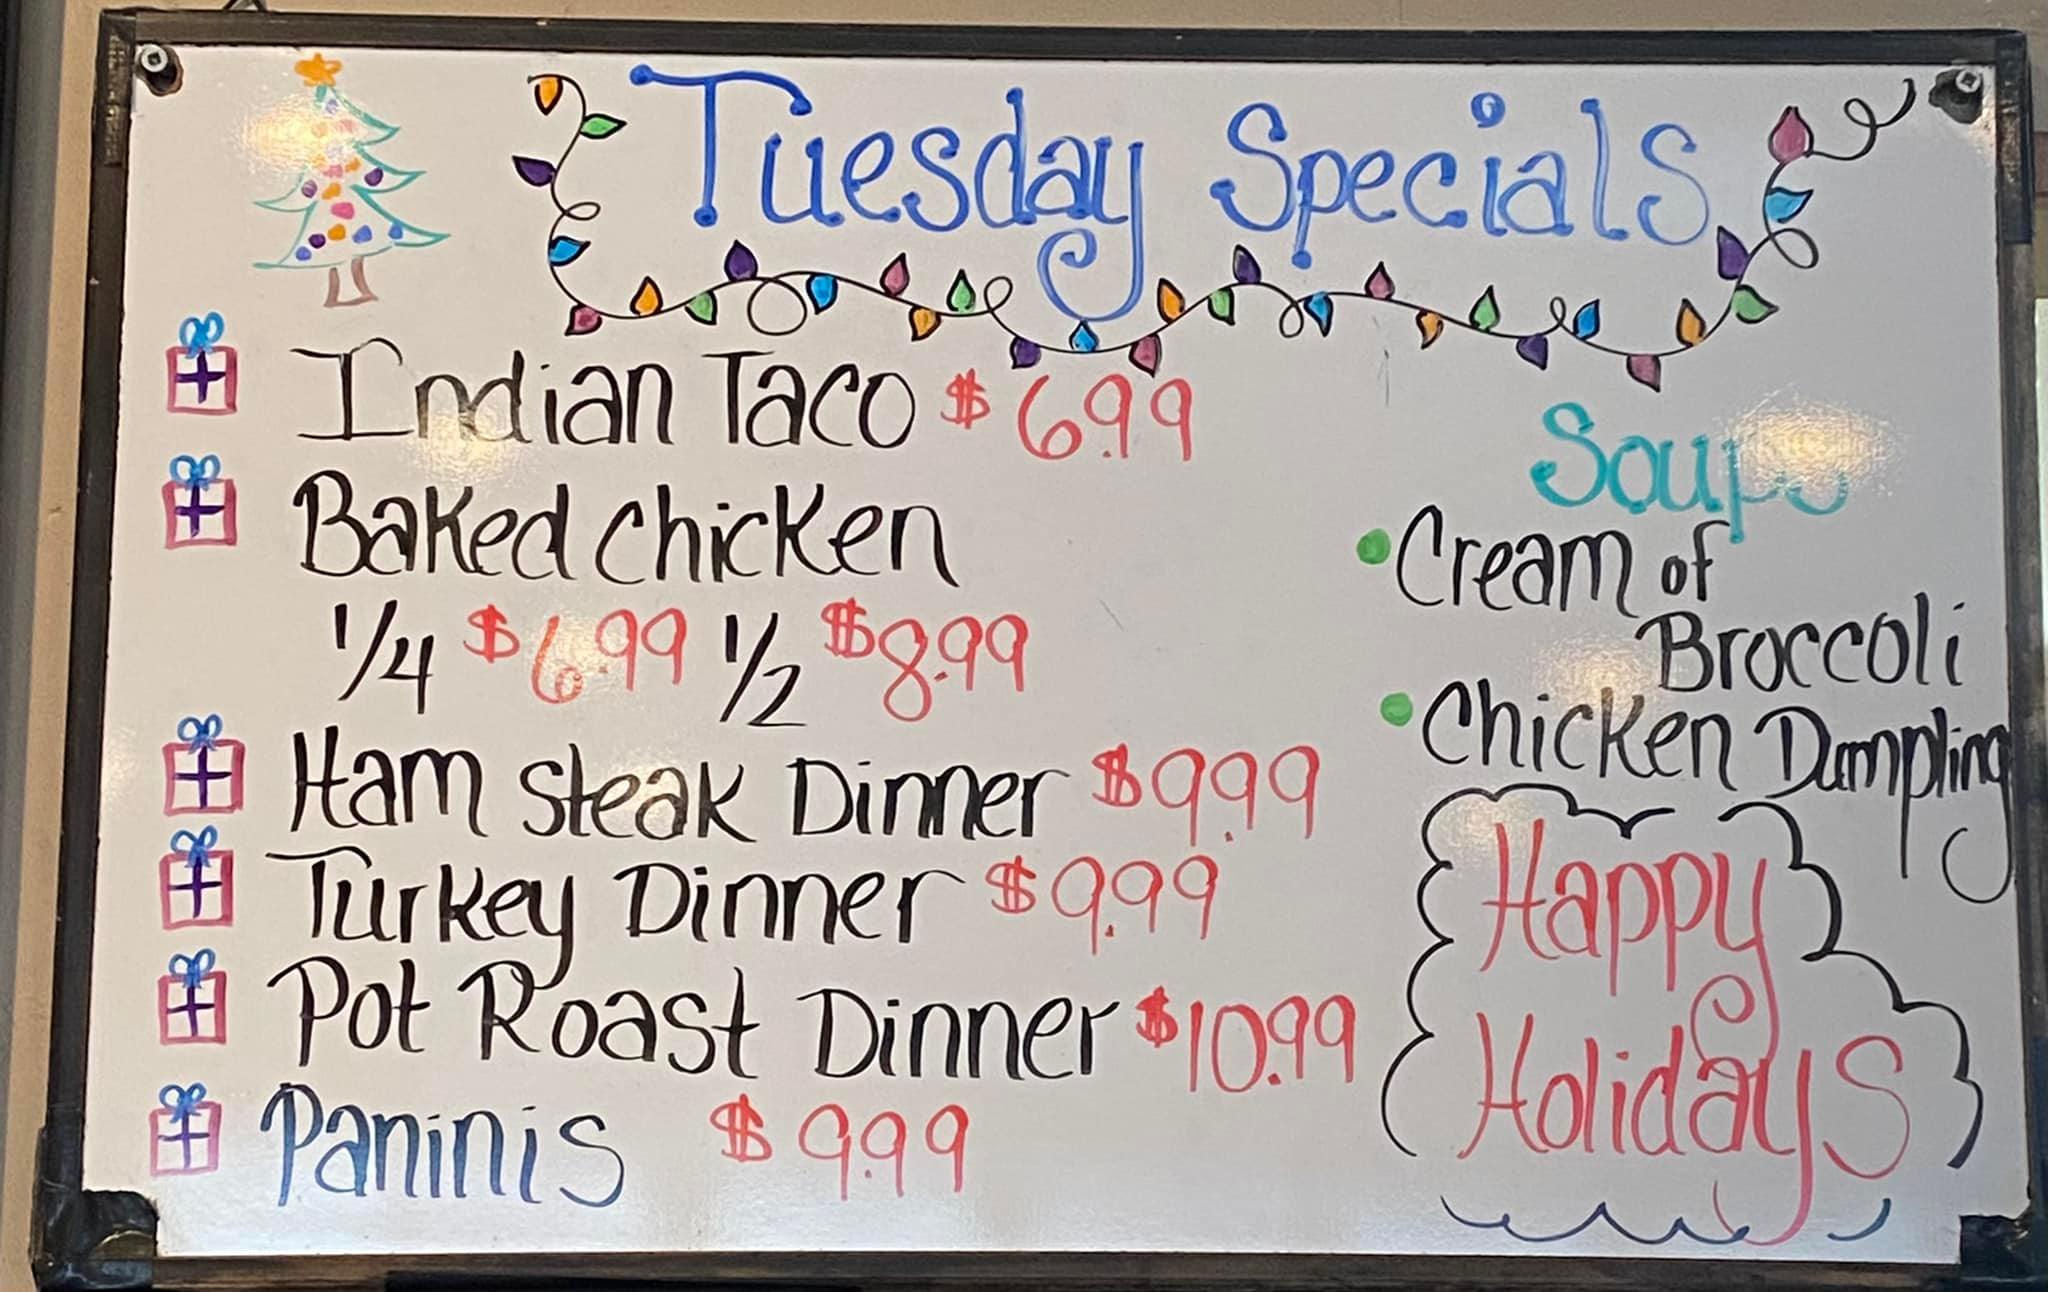 Tuesday Specials
Indian Taco $6.99
Baked Chicken
1/4 $6.99 1/2 $8.99
Ham Steak Dinner $9.99
Turkey Dinner $9.99
Pot Roast Dinner $10.99
Paninis $9.99
Soups
• Cream of
Broccoli
• Chicken Dumpling
Happy
Holidays